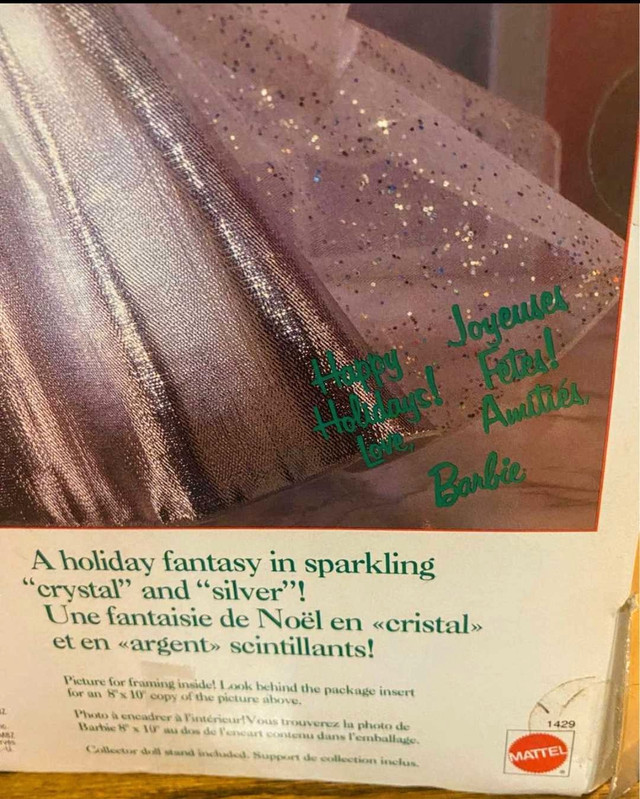 Happy
Holidays!
Love,
Joyeuses
Fêtes!
Amitiés,
Barbie
A holiday fantasy in sparkling
“crystal” and “silver”!
Une fantaisie de Noël en «cristal»
et en «argent» scintillants!
Picture for framing inside! Look behind the package insert
for an 8" x 10" copy of the picture above.
Photo à encadrer à l'intérieur! Vous trouverez la photo de
Barbie 8" x 10" au dos de l'encart contenu dans l'emballage.
Collector doll stand included. Support de collection inclus.
1429
MATTEL